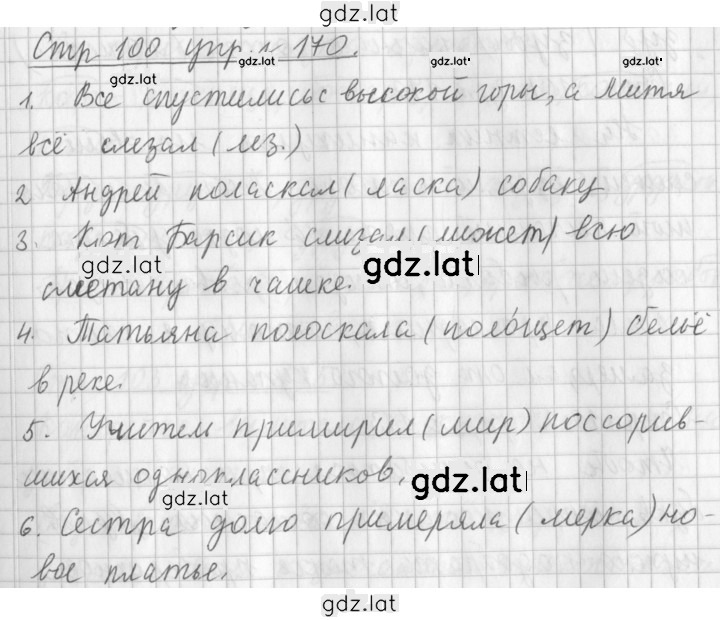 gdz.lat
Стр 100 упр. 170.
gdz.lat gdz.lat gdz.lat
1. Все спустились с высокой горы, а Митя
всё слезал (лез.)
2 Андрей поласкал (ласка) собаку
3. Кот Барсик слизал (лижет) всю
gdz.lat gdz.lat
сметану в чашке.
4. Татьяна полоскала (поло́щет) бельё
в реке.
5. Учител примирил (мир) поссорив-
шихся одноклассников.
gdz.lat gdz.lat
6. Сестра долго примеряла (мерка) но-
вое платье.
gdz.lat